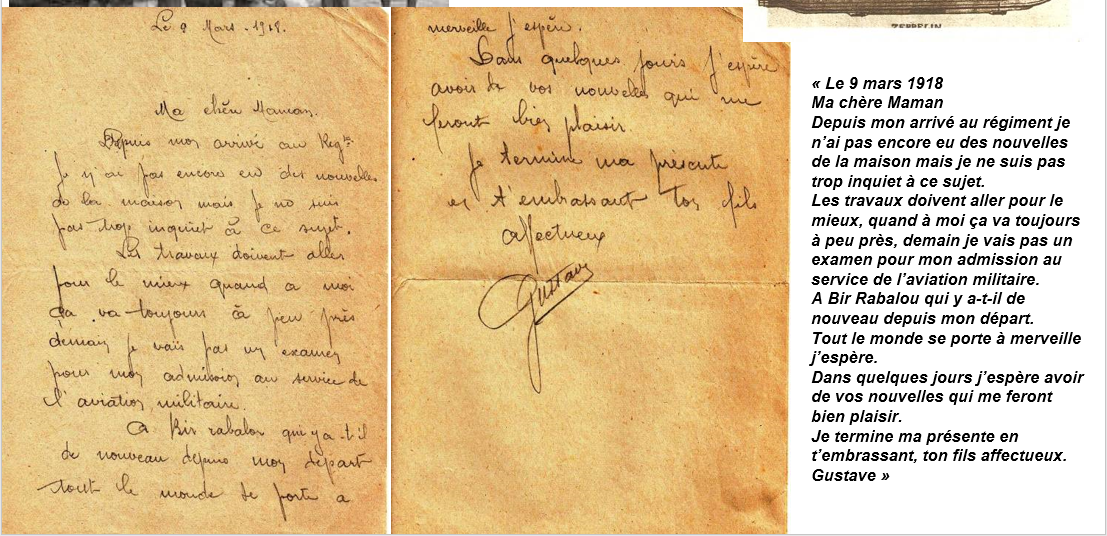 ZEPPELIN
Le 9 Mars - 1918.
Ma chère Maman.
Depuis mon arrivé au Regt
je n'ai pas encore eu des nouvelles
de la maison mais je ne suis
pas trop inquiet à ce sujet.
Les travaux doivent aller
pour le mieux quand a moi
ça va toujours à peu près
demain je vais pas un examen
pour mon admission au service de
l'aviation militaire.
A Bir rabalou qui y a-t-il
de nouveau depuis mon départ
tout le monde se porte a
merveille j'espère.
Dans quelques jours j'espère
avoir de vos nouvelles qui me
feront bien plaisir.
Je termine ma présente
en t'embrassant ton fils
affectueux
Gustave
« Le 9 mars 1918
Ma chère Maman
Depuis mon arrivé au régiment je
n’ai pas encore eu des nouvelles
de la maison mais je ne suis pas
trop inquiet à ce sujet.
Les travaux doivent aller pour le
mieux, quand à moi ça va toujours
à peu près, demain je vais pas un
examen pour mon admission au
service de l’aviation militaire.
A Bir Rabalou qui y a-t-il de
nouveau depuis mon départ.
Tout le monde se porte à merveille
j’espère.
Dans quelques jours j’espère avoir
de vos nouvelles qui me feront
bien plaisir.
Je termine ma présente en
t’embrassant, ton fils affectueux.
Gustave »